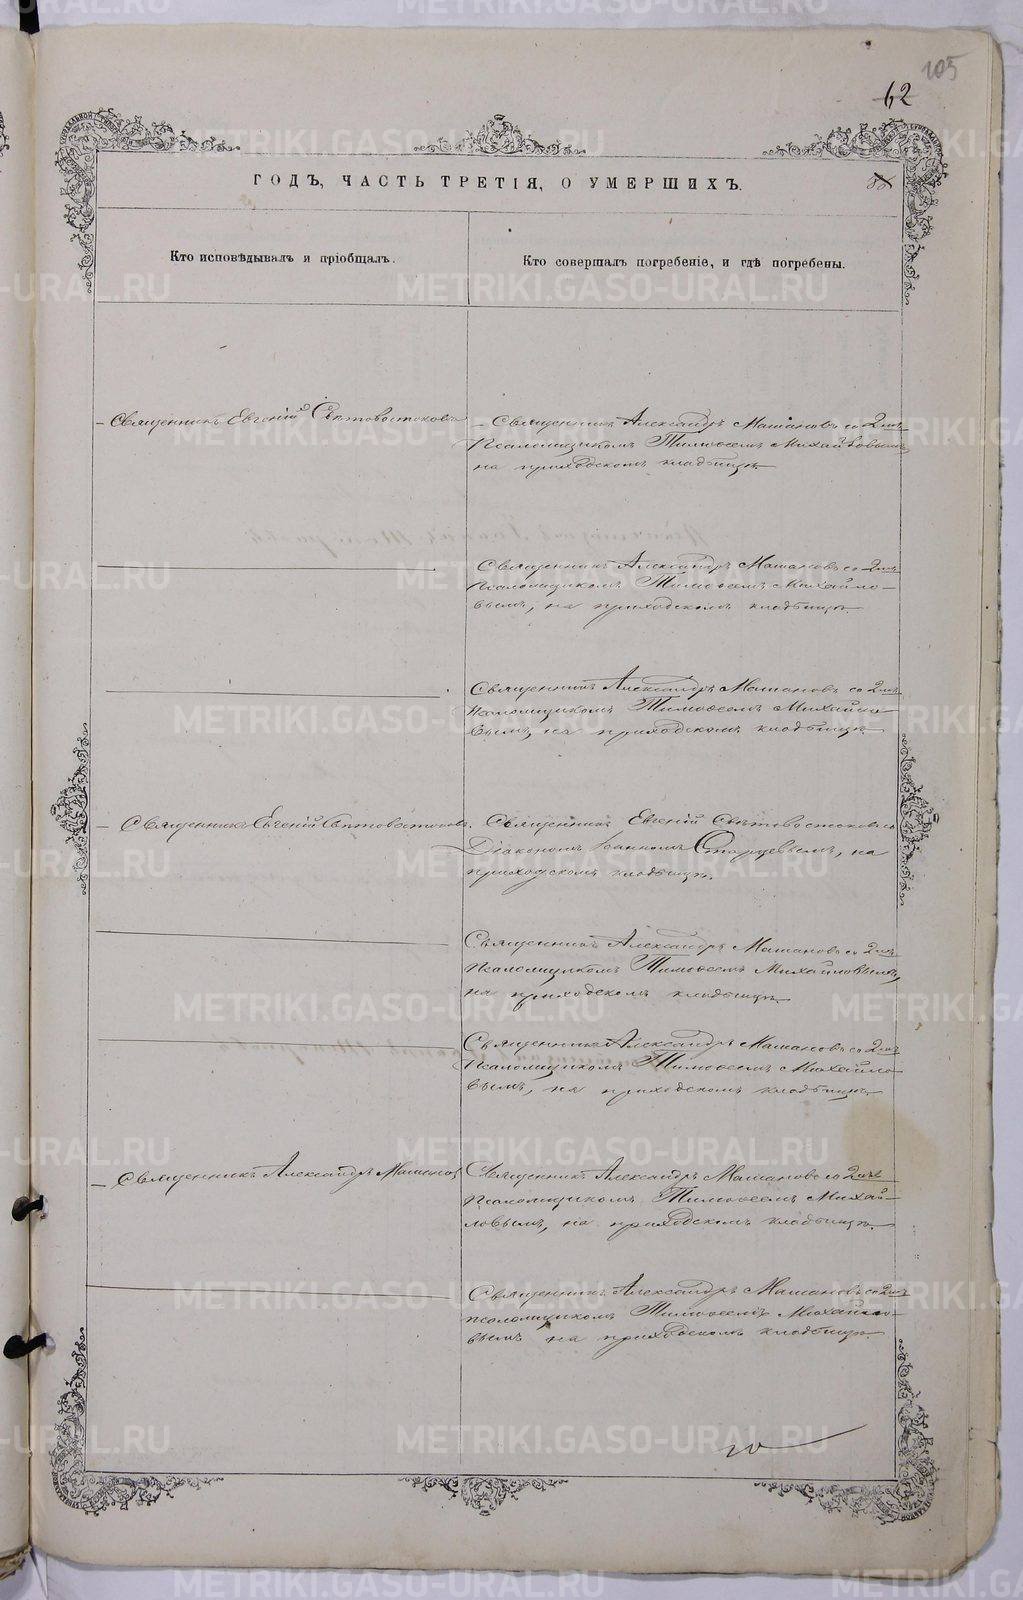 105
62
ГОДЪ, ЧАСТЬ ТРЕТІЯ, О УМЕРШИХЪ.
88
Кто исповѣдывалъ и пріобщалъ.
Кто совершалъ погребеніе, и гдѣ погребены.
– Священникъ Евгеній Свѣтовостоковъ
– Священникъ Александръ Машановъ со 2мъ
Псаломщикомъ Тимофеемъ Михайловымъ
на приходскомъ кладбищѣ
Священникъ Александръ Машановъ со 2мъ
псаломщикомъ Тимофеемъ Михайло-
вымъ, на приходскомъ кладбищѣ.
Священникъ Александръ Машановъ со 2мъ
псаломщикомъ Тимофеемъ Михайло
вымъ, на приходскомъ кладбищѣ
– Священникъ Евгеній Свѣтовостоковъ.
Священникъ Евгеній Свѣтовостоковъ съ
Діакономъ Іоанномъ Старцевымъ, на
приходскомъ кладбищѣ.
Священникъ Александръ Машановъ со 2мъ
Псаломщикомъ Тимофеемъ Михайловымъ,
на приходскомъ кладбищѣ
Священникъ Александръ Машановъ со 2мъ
Псаломщикомъ Тимофеемъ Михайло
вымъ, на приходскомъ кладбищѣ
– Священникъ Александръ Машановъ
Священникъ Александръ Машановъ со 2мъ
Псаломщикомъ Тимофеемъ Михай-
ловымъ, на приходскомъ кладбищѣ.
Священникъ Александръ Машановъ со 2мъ
псаломщикомъ Тимофеемъ Михайло-
вымъ на приходскомъ кладбищѣ.
METRIKI.GASO-URAL.RU